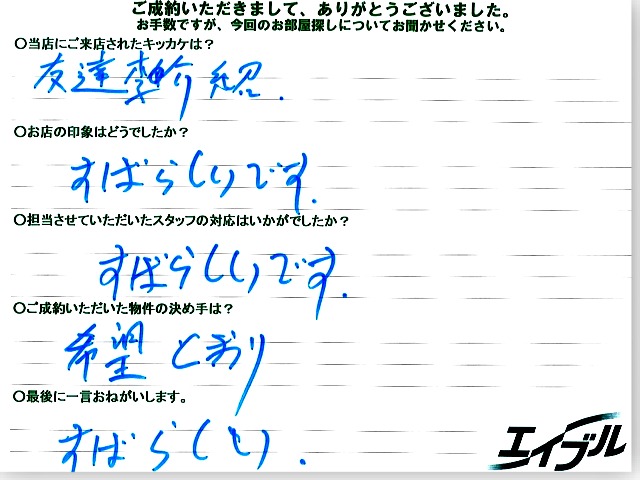 ご成約いただきまして、ありがとうございました。
お手数ですが、今回のお部屋探しについてお聞かせください。
○当店にご来店されたキッカケは？
友達李介紹.
○お店の印象はどうでしたか？
すばらしいです.
○担当させていただいたスタッフの対応はいかがでしたか？
すばらしいです.
○ご成約いただいた物件の決め手は？
希望とおり
○最後に一言おねがいします。
すばらしい.
エイブル